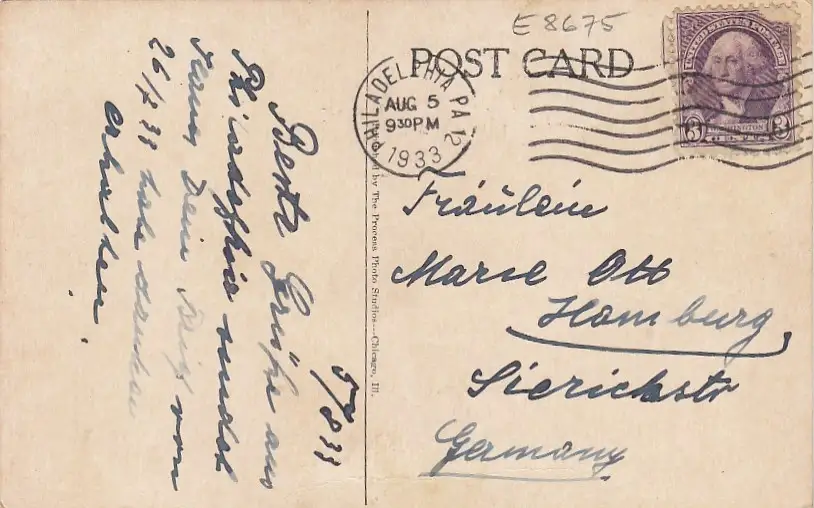 E 8675
POST CARD
PHILADELPHIA PA 12
AUG 5
9 30 PM
1933
UNITED STATES POSTAGE
3 WASHINGTON 3
by The Process Photo Studios—Chicago, Ill.
5/8 33
Beste Grüße aus
Philadelphia sendet
Dein Brief von
26/7 33 habe dankend
erhalten.
Fräulein
Marie Ott
Hamburg
Sierichstr
Germany